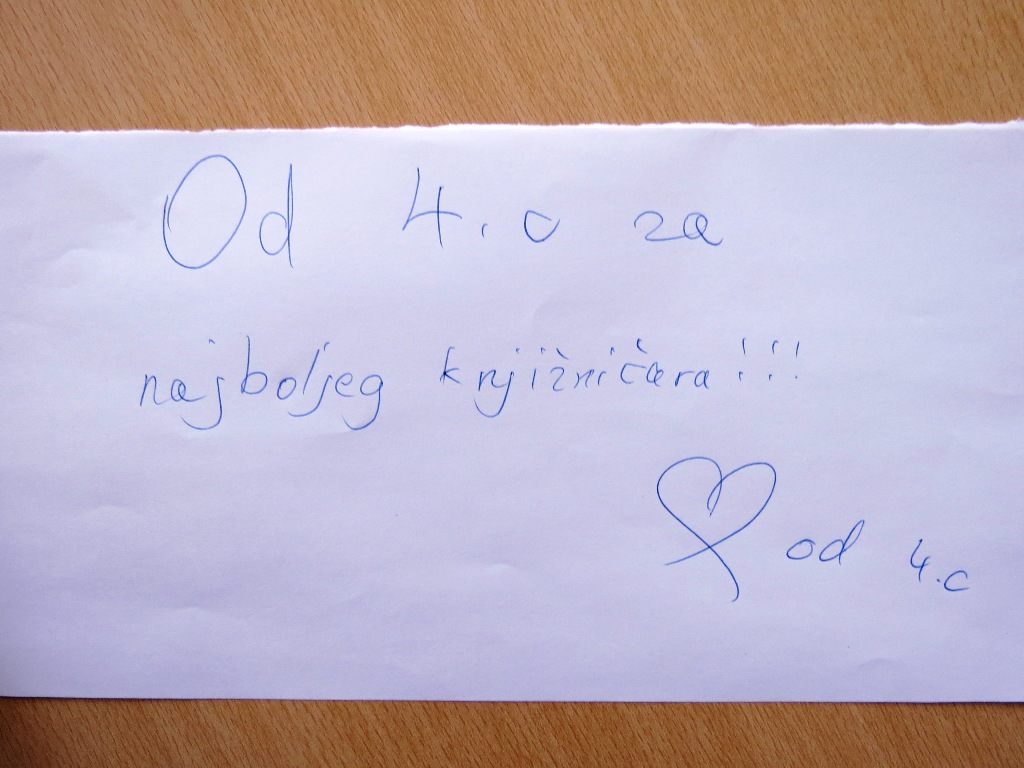 Od 4.c za
najboljeg knjižničara!!!
od 4.c